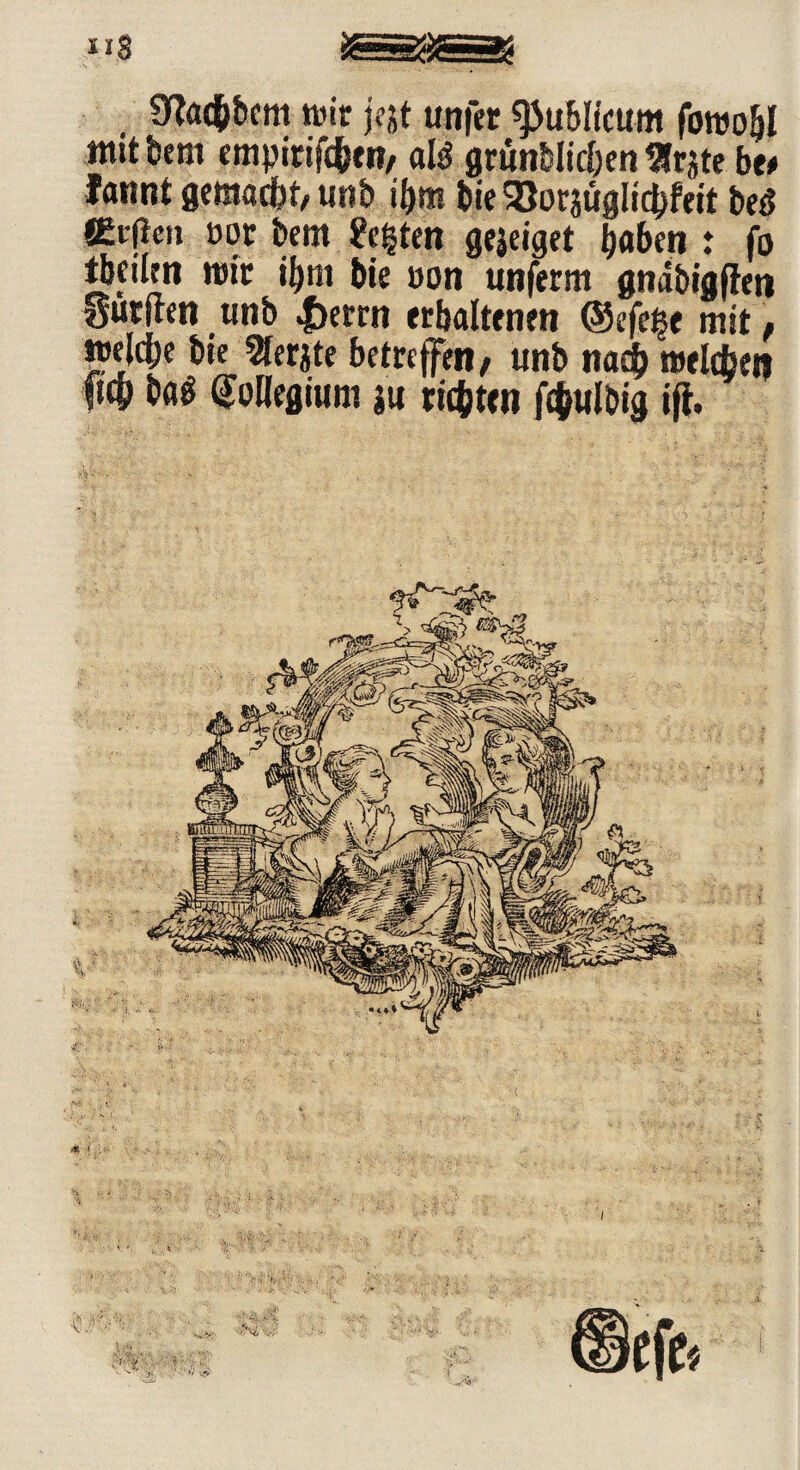 118
Nachdem wir jezt unser Publicum sowohl
mit dem empirischen, als gründlichen Arzte be⸗
kannt gemacht, und ihm die Vorzüglichkeit des
Ersten vor dem Letzten gezeiget haben : so
theilen wir ihm die von unserm gnädigsten
Fürsten und Herrn erhaltenen Gesetze mit,
welche die Aerzte betreffen, und nach welchen
sich das Collegium zu richten schuldig ist.
Gese⸗